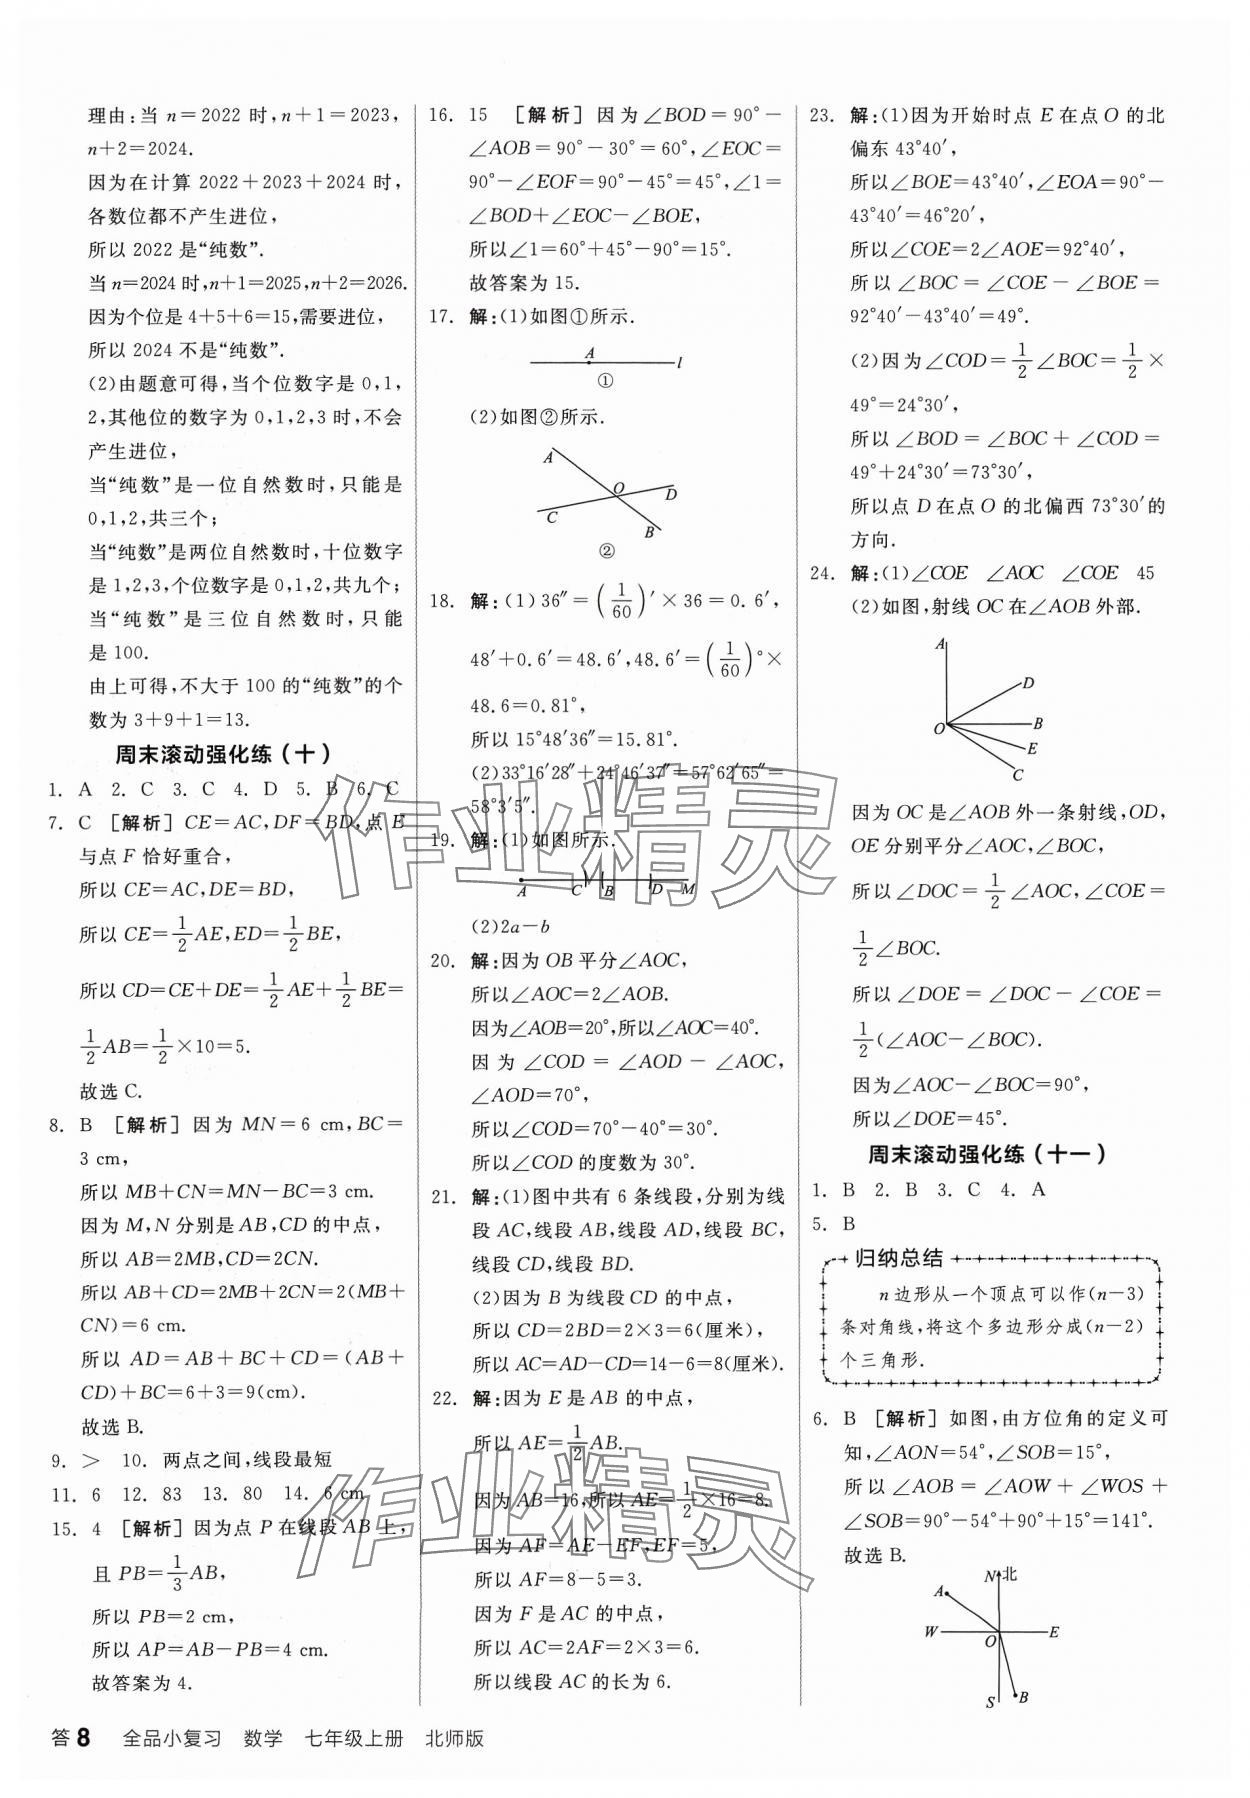 理由:当 n=2022 时,n+1=2023,
n+2=2024.
因为在计算 2022+2023+2024 时,
各数位都不产生进位,
所以 2022 是“纯数”.
当 n=2024 时,n+1=2025,n+2=2026.
因为个位是 4+5+6=15,需要进位,
所以 2024 不是“纯数”.
(2)由题意可得,当个位数字是 0,1,
2,其他位的数字为 0,1,2,3 时,不会
产生进位,
当“纯数”是一位自然数时,只能是
0,1,2,共三个;
当“纯数”是两位自然数时,十位数字
是 1,2,3,个位数字是 0,1,2,共九个;
当“纯数”是三位自然数时,只能
是 100.
由上可得,不大于 100 的“纯数”的个
数为 3+9+1=13.
周末滚动强化练(十)
1. A 2. C 3. C 4. D 5. B 6. C
7. C [解析] CE=AC,DF=BD,点 E
与点 F 恰好重合,
所以 CE=AC,DE=BD,
所以 CE=1/2 AE,ED=1/2 BE,
所以 CD=CE+DE=1/2 AE+1/2 BE=
1/2 AB=1/2×10=5.
故选 C.
8. B [解析] 因为 MN=6 cm,BC=
3 cm,
所以 MB+CN=MN-BC=3 cm.
因为 M,N 分别是 AB,CD 的中点,
所以 AB=2MB,CD=2CN.
所以 AB+CD=2MB+2CN=2(MB+
CN)=6 cm.
所以 AD=AB+BC+CD=(AB+
CD)+BC=6+3=9(cm).
故选 B.
9. > 10. 两点之间,线段最短
11. 6 12. 83 13. 80 14. 6 cm
15. 4 [解析] 因为点 P 在线段 AB 上,
且 PB=1/3 AB,
所以 PB=2 cm,
所以 AP=AB-PB=4 cm.
故答案为 4.
16. 15 [解析] 因为∠BOD=90°-
∠AOB=90°-30°=60°,∠EOC=
90°-∠EOF=90°-45°=45°,∠1=
∠BOD+∠EOC-∠BOE,
所以∠1=60°+45°-90°=15°.
故答案为 15.
17. 解:(1)如图①所示.
A l
①
(2)如图②所示.
A
O D
C
B
②
18. 解:(1)36″=(1/60)′×36=0.6′,
48′+0.6′=48.6′,48.6′=(1/60)°×
48.6=0.81°,
所以 15°48′36″=15.81°.
(2)33°16′28″+24°46′37″=57°62′65″=
58°3′5″.
19. 解:(1)如图所示.
A C B D M
(2)2a-b
20. 解:因为 OB 平分∠AOC,
所以∠AOC=2∠AOB.
因为∠AOB=20°,所以∠AOC=40°.
因为∠COD=∠AOD-∠AOC,
∠AOD=70°,
所以∠COD=70°-40°=30°.
所以∠COD 的度数为 30°.
21. 解:(1)图中共有 6 条线段,分别为线
段 AC,线段 AB,线段 AD,线段 BC,
线段 CD,线段 BD.
(2)因为 B 为线段 CD 的中点,
所以 CD=2BD=2×3=6(厘米),
所以 AC=AD-CD=14-6=8(厘米).
22. 解:因为 E 是 AB 的中点,
所以 AE=1/2 AB.
因为 AB=16,所以 AE=1/2×16=8.
因为 AF=AE-EF,EF=5,
所以 AF=8-5=3.
因为 F 是 AC 的中点,
所以 AC=2AF=2×3=6.
所以线段 AC 的长为 6.
23. 解:(1)因为开始时点 E 在点 O 的北
偏东 43°40′,
所以∠BOE=43°40′,∠EOA=90°-
43°40′=46°20′,
所以∠COE=2∠AOE=92°40′,
所以∠BOC=∠COE-∠BOE=
92°40′-43°40′=49°.
(2)因为∠COD=1/2∠BOC=1/2×
49°=24°30′,
所以∠BOD=∠BOC+∠COD=
49°+24°30′=73°30′,
所以点 D 在点 O 的北偏西 73°30′的
方向.
24. 解:(1)∠COE ∠AOC ∠COE 45
(2)如图,射线 OC 在∠AOB 外部.
A
D
O B
E
C
因为 OC 是∠AOB 外一条射线,OD,
OE 分别平分∠AOC,∠BOC,
所以∠DOC=1/2∠AOC,∠COE=
1/2∠BOC.
所以∠DOE=∠DOC-∠COE=
1/2(∠AOC-∠BOC).
因为∠AOC-∠BOC=90°,
所以∠DOE=45°.
周末滚动强化练(十一)
1. B 2. B 3. C 4. A
5. B
归纳总结
n 边形从一个顶点可以作(n-3)
条对角线,将这个多边形分成(n-2)
个三角形.
6. B [解析] 如图,由方位角的定义可
知,∠AON=54°,∠SOB=15°,
所以∠AOB=∠AOW+∠WOS+
∠SOB=90°-54°+90°+15°=141°.
故选 B.
N 北
A
W O E
S B
答 8 全品小复习 数学 七年级上册 北师版
作业精灵
作业精灵